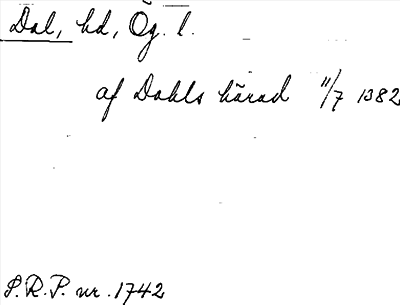 Dal, hd, Ög. l.
af Dahls härad 11/7 1382
S.R.P. nr. 1742